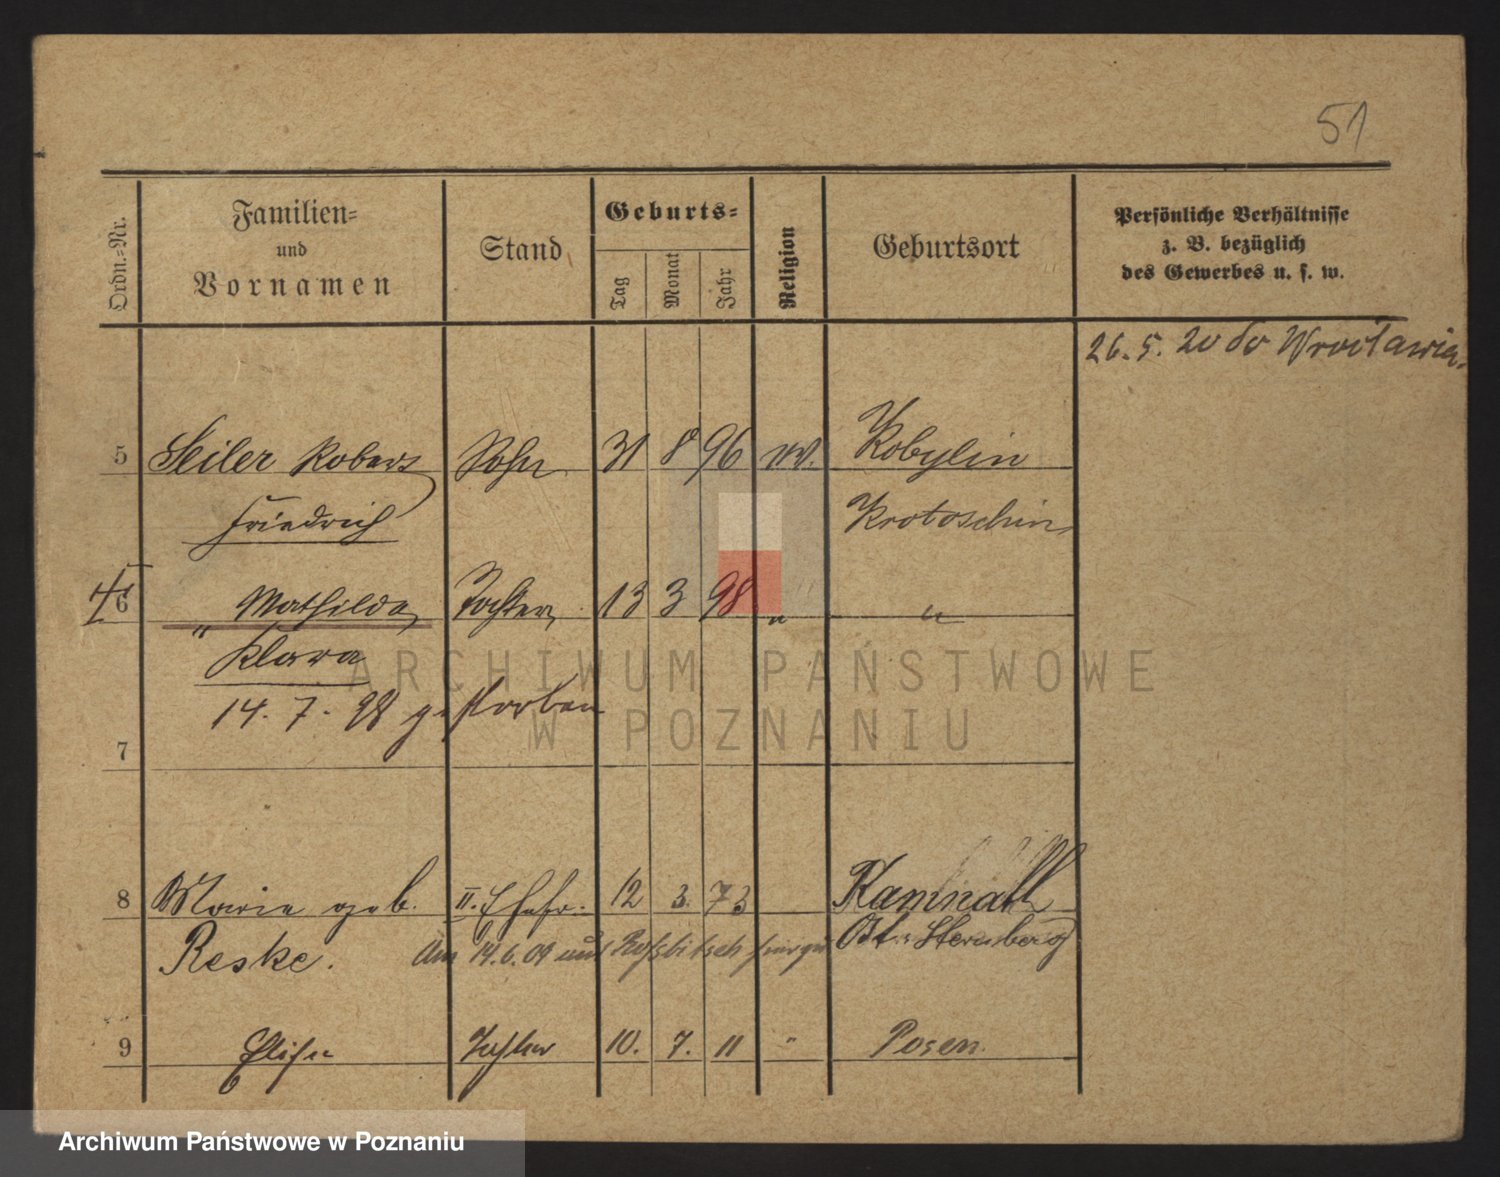 51
Ordn.-Nr.
Familien-
und
Vornamen
Stand
Geburts-
Tag
Monat
Jahr
Religion
Geburtsort
Persönliche Verhältnisse
z. B. bezüglich
des Gewerbes u. s. w.
26. 5. 20 do Wrocławia.
5 Seiler Robert Sohn 31 8 96 ev. Kobylin
Friedrich Krotoschin
6 " Mathilde Tochter 13 3 98 " "
Klara
14. 7. 98 gestorben
7
8 Marie geb. II. Ehefr. 12 3. 73 Kamnath
Reske. Am 14.6.09 Ost-Sternberg
9 Tochter 10. 7. 11 " Posen.
ARCHIWUM PAŃSTWOWE
W POZNANIU
Archiwum Państwowe w Poznaniu